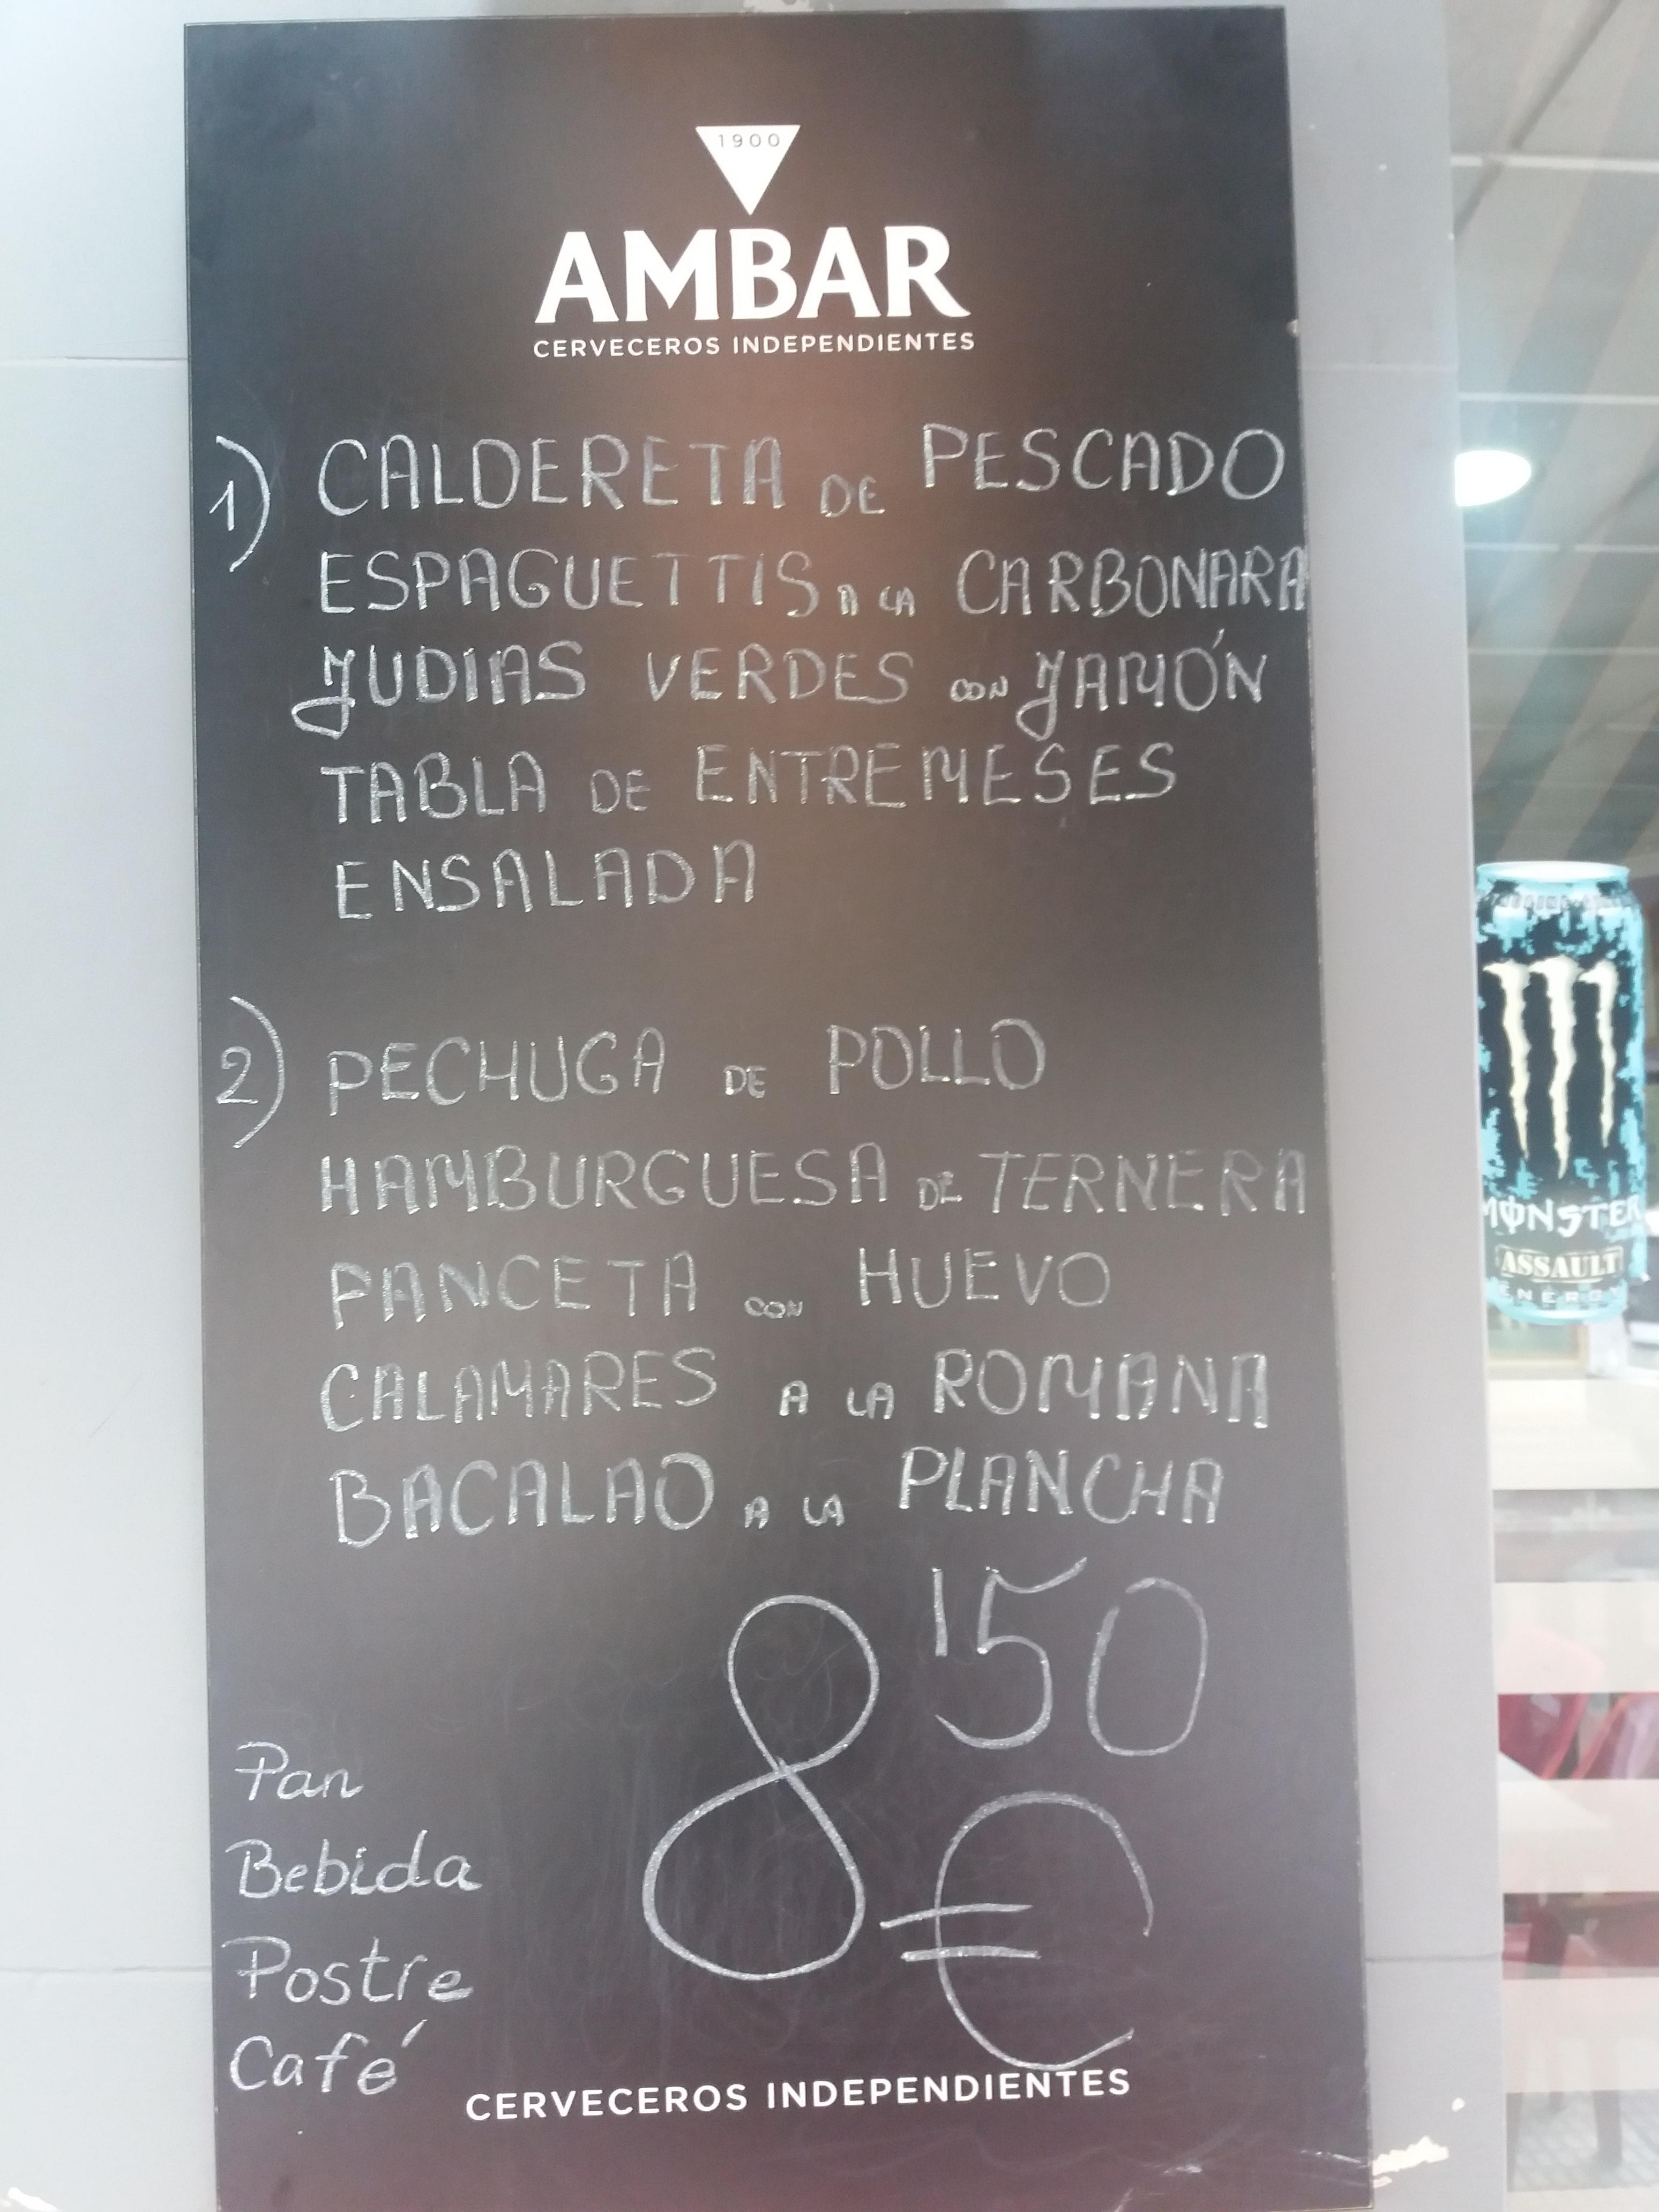 1900
AMBAR
CERVECEROS INDEPENDIENTES
1) CALDERETA DE PESCADO
ESPAGUETTIS A LA CARBONARA
JUDIAS VERDES CON JAMÓN
TABLA DE ENTREMESES
ENSALADA
2) PECHUGA DE POLLO
HAMBURGUESA DE TERNERA
PANCETA CON HUEVO
CALAMARES A LA ROMANA
BACALAO A LA PLANCHA
8'50
€
Pan
Bebida
Postre
Café
CERVECEROS INDEPENDIENTES
MONSTER
ASSAULT
ENERGY